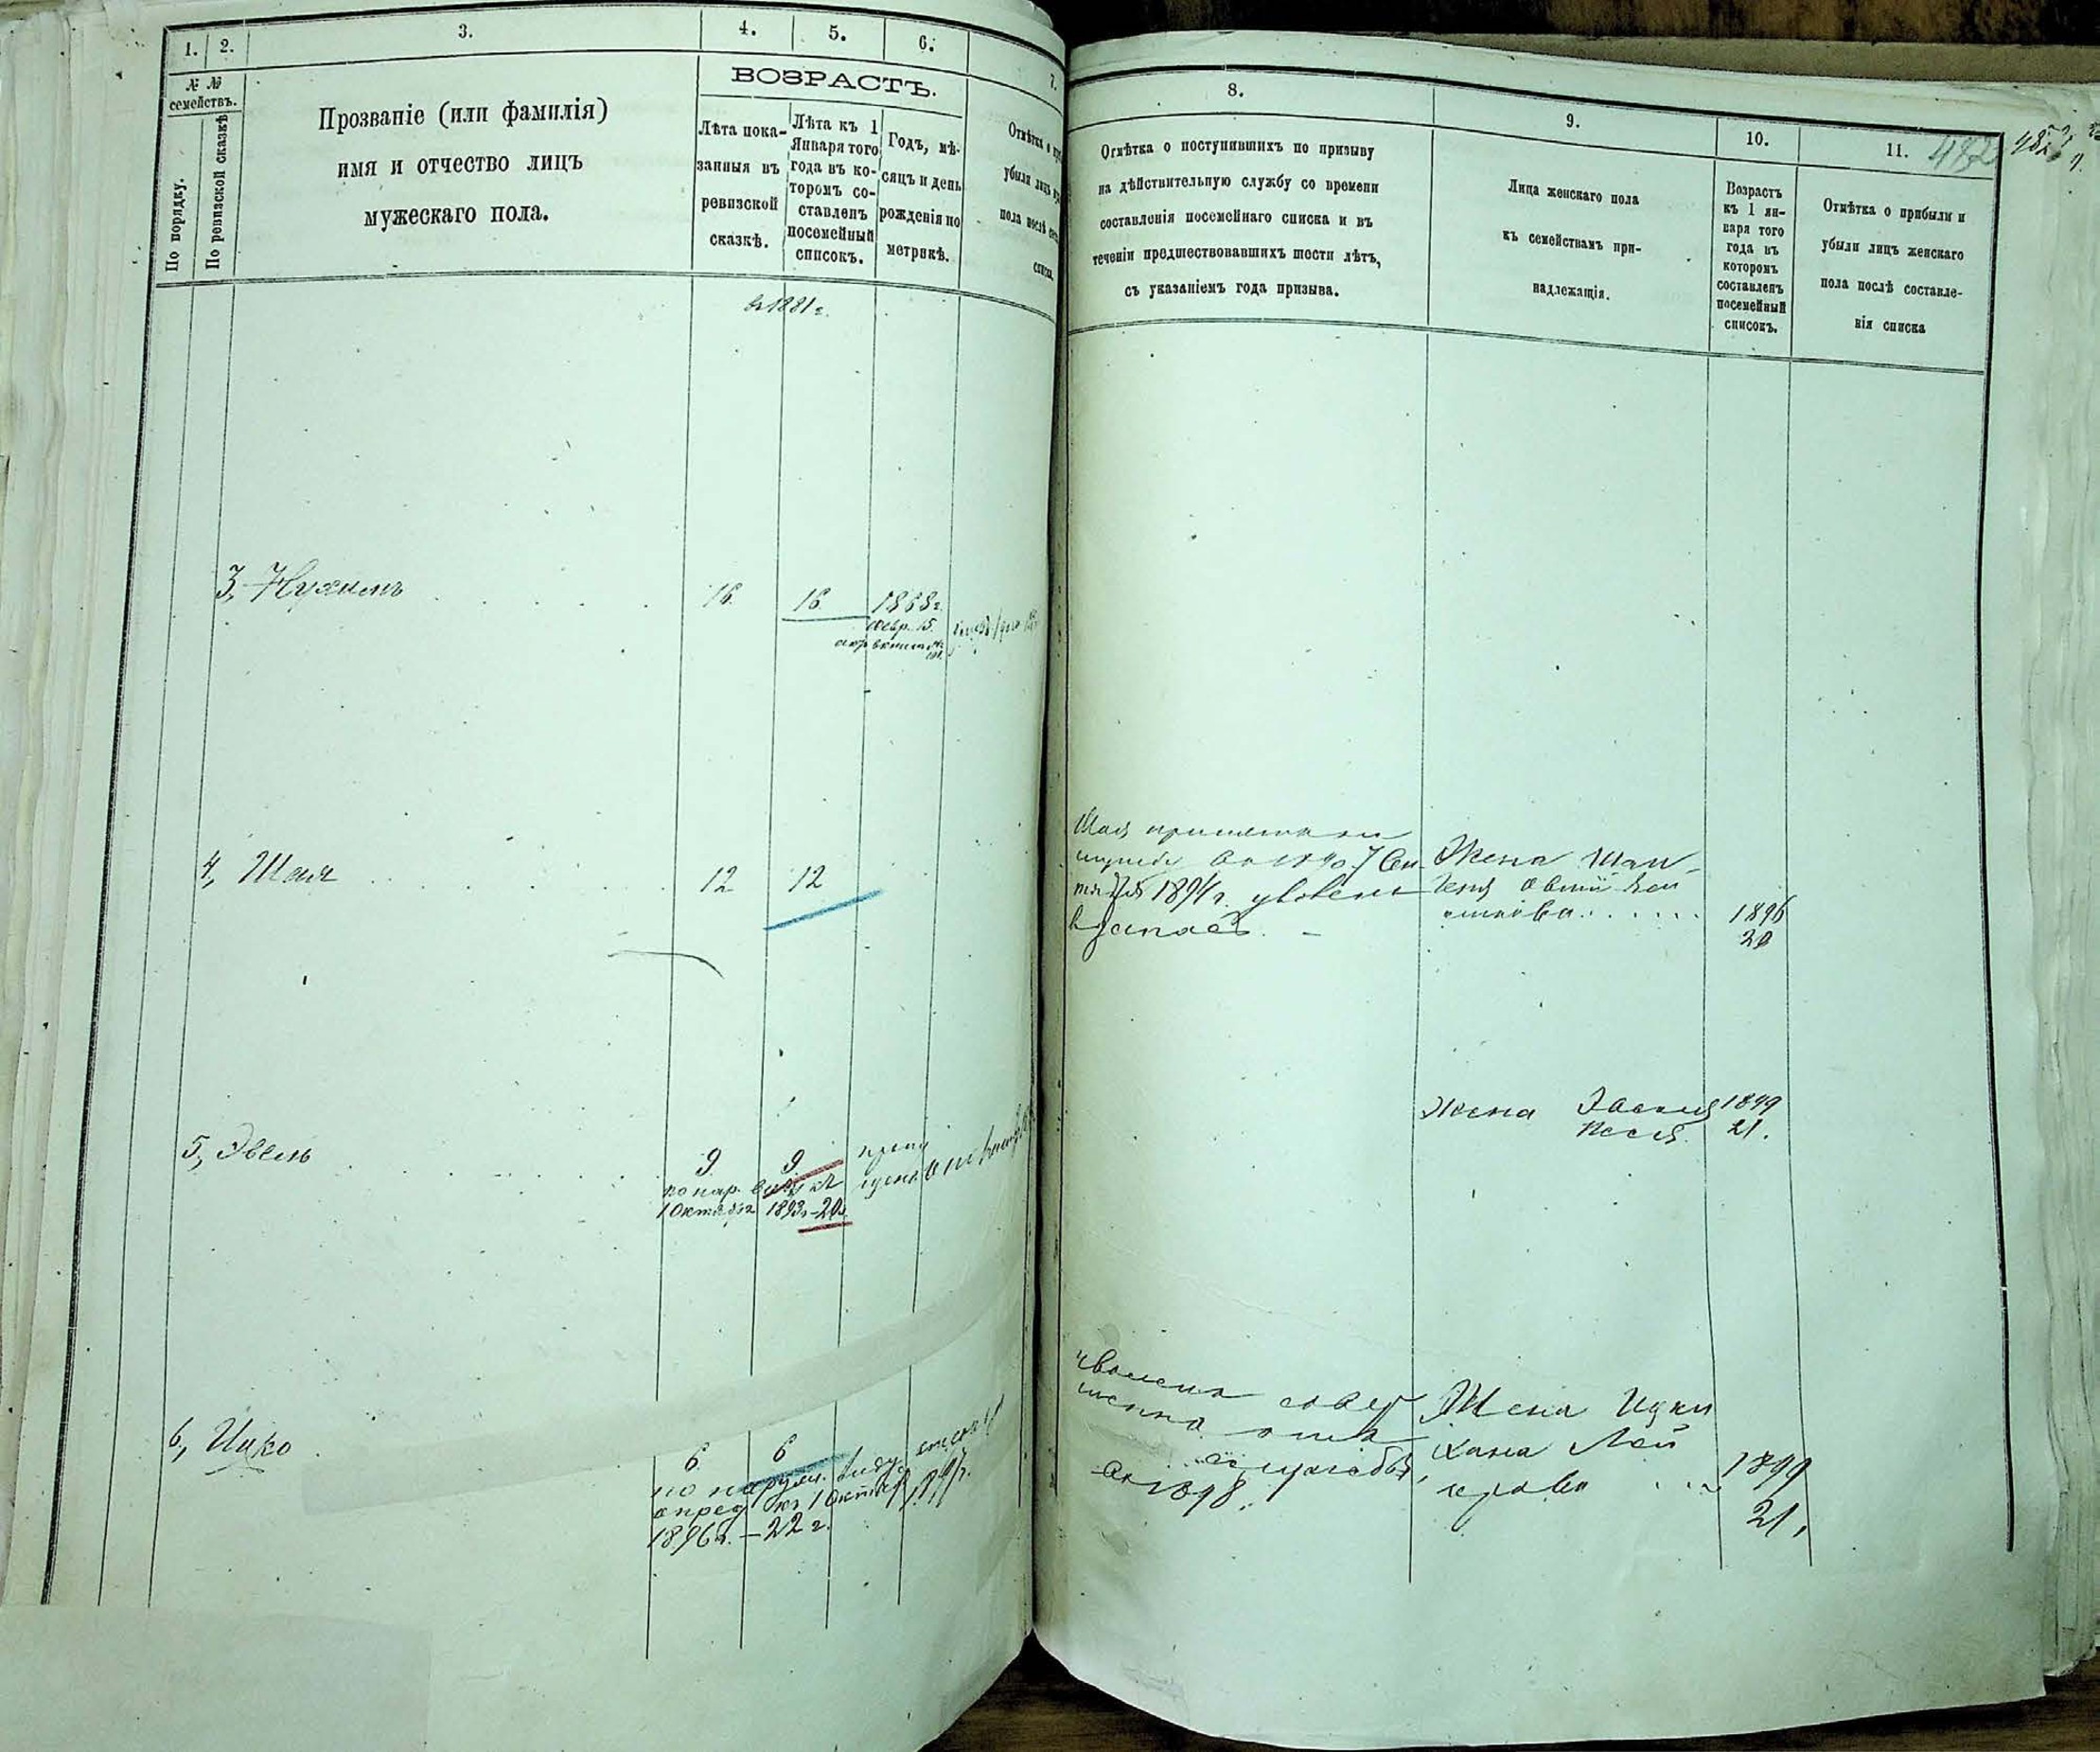 1. 2. 3. 4. 5. 6. 7.
№ №
семействъ.
По порядку.
По ревизской сказкѣ
Прозваніе (или фамилія)
имя и отчество лицъ
мужескаго пола.
ВОЗРАСТЪ.
Лѣта пока-
занныя въ
ревизской
сказкѣ.
Лѣта къ 1
Января того
года въ ко-
торомъ со-
ставленъ
посемейный
списокъ.
Годъ, мѣ-
сяцъ и день
рожденія по
метрикѣ.
Отмѣтка о
убыли лицъ
пола послѣ
списка.
въ 1881 г.
3, Нухимъ 16. 16 1868 г.
15.
4, Шая 12 12
5, Эвель 9. 9.
по нар. виду къ
1 Октября 1893 г. - 20 л.
6, Ицко 6. 6
по наружн. виду
опред. къ 1 Октября
1896 г. - 22 г.
8. 9. 10. 11. 482
Отмѣтка о поступившихъ по призыву
на дѣйствительную службу со времени
составленія посемейнаго списка и въ
теченіи предшествовавшихъ шести лѣтъ,
съ указаніемъ года призыва.
Лица женскаго пола
къ семействамъ при-
надлежащія.
Возрастъ
къ 1 ян-
варя того
года въ
которомъ
составленъ
посемейный
списокъ.
Отмѣтка о прибыли и
убыли лицъ женскаго
пола послѣ составле-
нія списка
Шая принятъ на
службу въ 1890. 7 Сен-
тября 1894 г. уволенъ
въ запасъ. -
Жена Шаи -
1896
20
Жена Эвеля 1899
Песя. 21.
уволенъ совер
шенно отъ
службы,
въ 1898.
Жена Ицки
Хана Лей
1899
21.